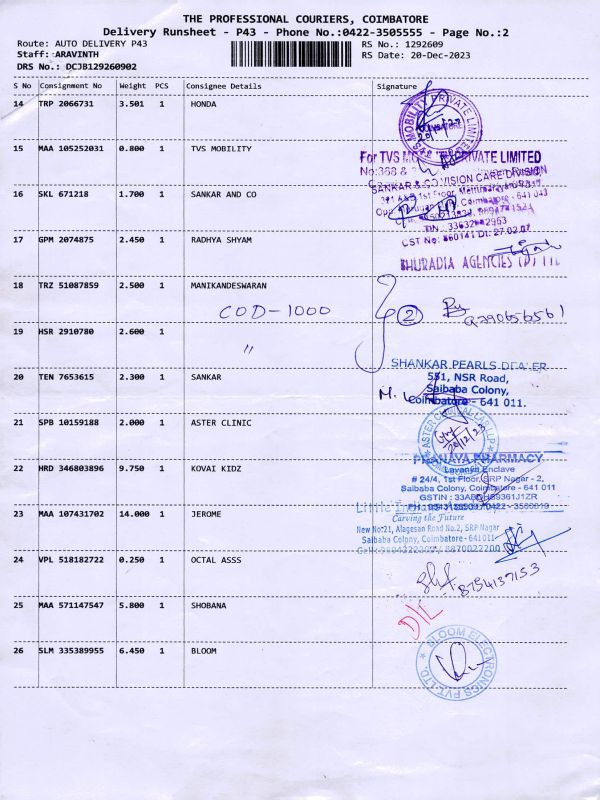 THE PROFESSIONAL COURIERS, COIMBATORE
Delivery Runsheet - P43 - Phone No.:0422-3505555 - Page No.:2
Route: AUTO DELIVERY P43 RS No.: 1292609
Staff: ARAVINTH RS Date: 20-Dec-2023
DRS No.: DCJB129260902
S No Consignment No Weight PCS Consignee Details Signature
14 TRP 2066731 3.501 1 HONDA
TVS MOBILITY PRIVATE LIMITED
15 MAA 105252031 0.800 1 TVS MOBILITY
For TVS PRIVATE LIMITED
SANKAR & CO VISION CARE DIVISION
16 SKL 671218 1.700 1 SANKAR AND CO
17 GPM 2074875 2.450 1 RADHYA SHYAM
CST No: 860141 Dt: 27.02.07
BHURADIA AGENCIES (P) LTD
18 TRZ 51087859 2.500 1 MANIKANDESWARAN
COD-1000 2
19 HSR 2910780 2.600 1
"
SHANKAR PEARLS DEALER
20 TEN 7653615 2.300 1 SANKAR
551, NSR Road,
Saibaba Colony,
Coimbatore - 641 011.
21 SPB 10159188 2.000 1 ASTER CLINIC
20/12/23
PRANAYA PHARMACY
22 HRD 346803896 9.750 1 KOVAI KIDZ
Lavanya Enclave
# 24/4, 1st Floor, SRP Nagar - 2,
Saibaba Colony, Coimbatore - 641 011
23 MAA 107431702 14.000 1 JEROME
Carving the Future
New No:21, Alagesan Road No.2, SRP Nagar
Saibaba Colony, Coimbatore -641011
24 VPL 518182722 0.250 1 OCTAL ASSS
8754137153
25 MAA 571147547 5.800 1 SHOBANA
D/L
26 SLM 335389955 6.450 1 BLOOM
BLOOM ELECTRONICS PVT. LTD.